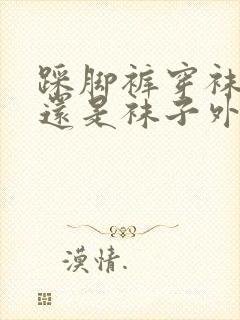 踩脚裤穿袜
還是袜子外
漠情.